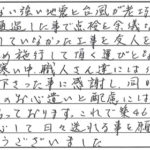 い強い地震と台風が
過した事で点検と会議
していなかった工事を友人を
め施行して頂く運びとな
寒い中、職人さん達には
下さった事に感謝し、
のお心遣いと配慮には
っております。これで築46
して日々送れる事を願
うございました